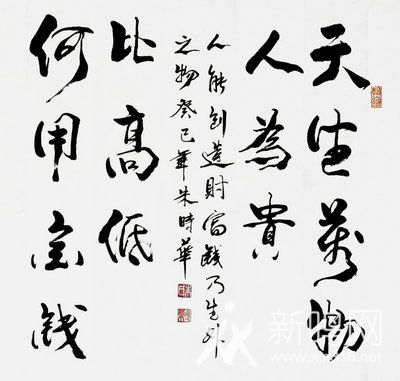 天生萬物
人為貴
何用金錢
比高低
人能創造財富錢乃身外
之物癸巳年朱時華